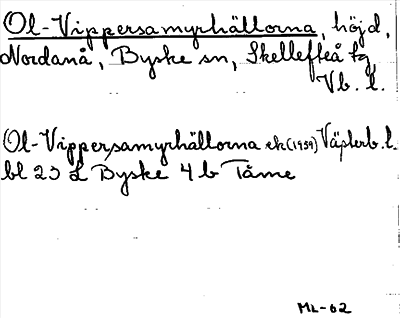 Ol-Vippersamyrhällorna, höjd,
Nordanå, Byske sn, Skellefteå tg
Vb. l.
Ol-Vippersamyrhällorna ek (1959) Västerb. l.
bl 23 L Byske 4 b Tåme
ML-62